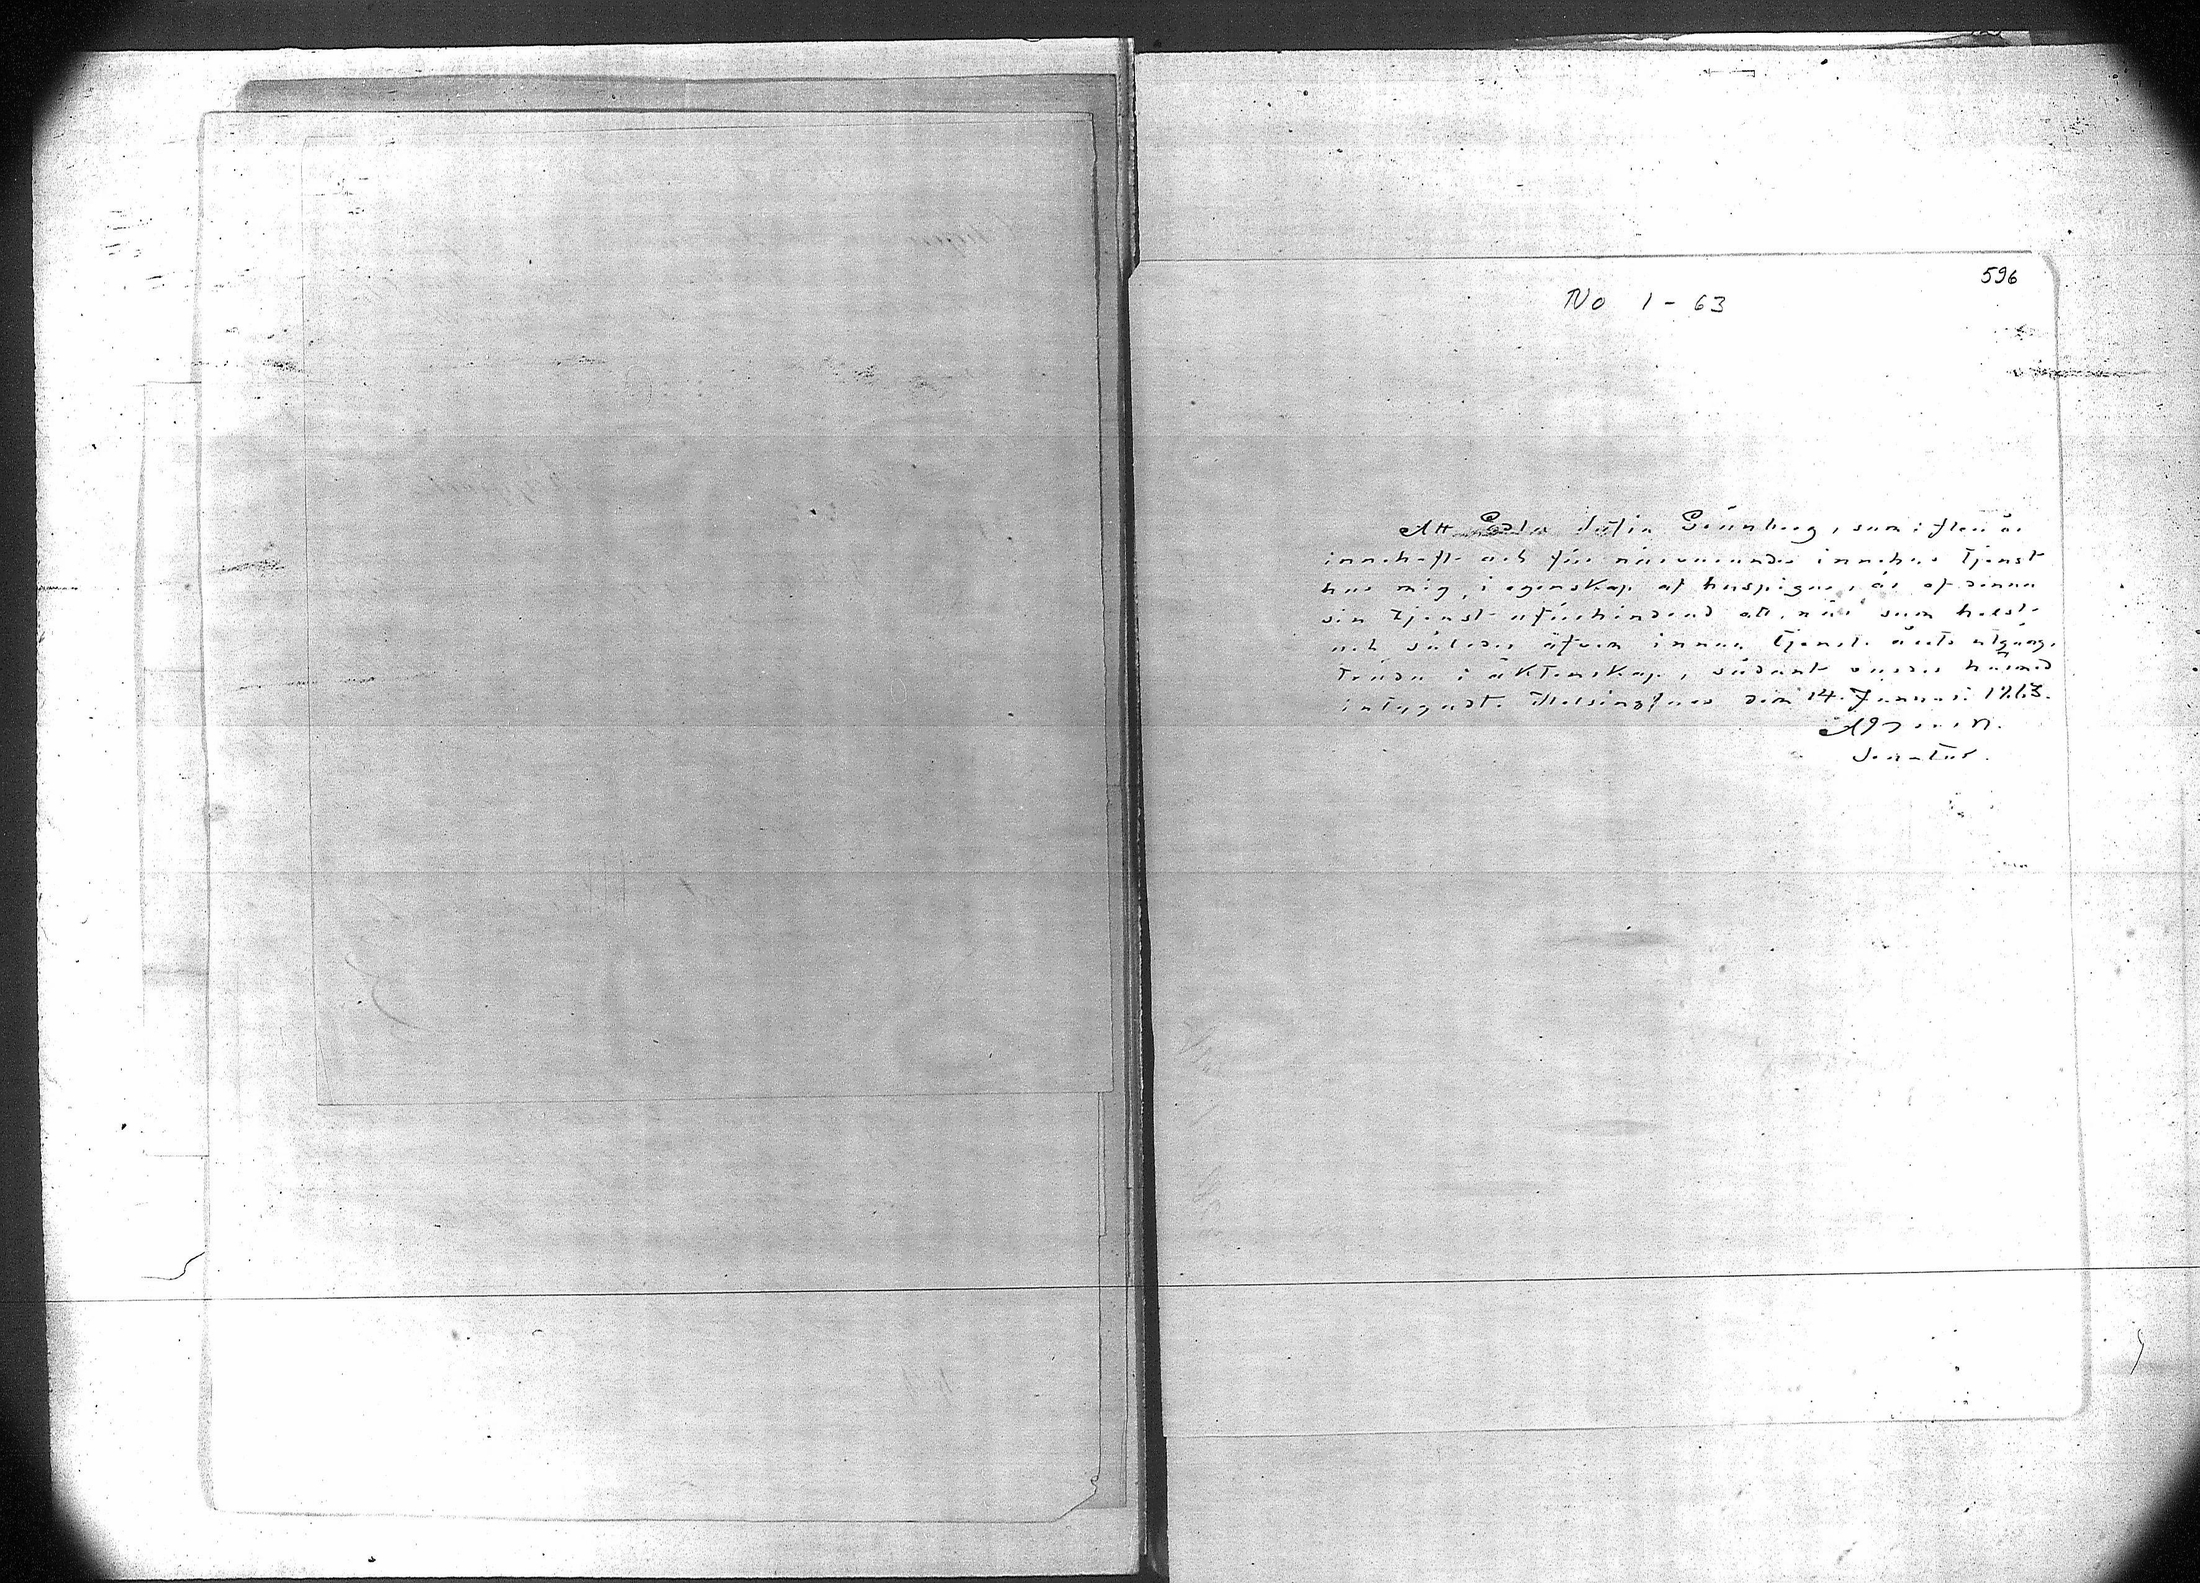 596
No 1-63
Att Julia Grünberg, som i flera år
innehaft och för närvarande innehar tjenst
hos mig, i egenskap af huspiga, är af denna
sin tjenst oförhindrad att, när som helst
och således äfven innan tjenste årets utgång,
träda i äktenskap, sådant varder härmed
intygadt. Helsingfors den 14 Januari 1863.
Senator.